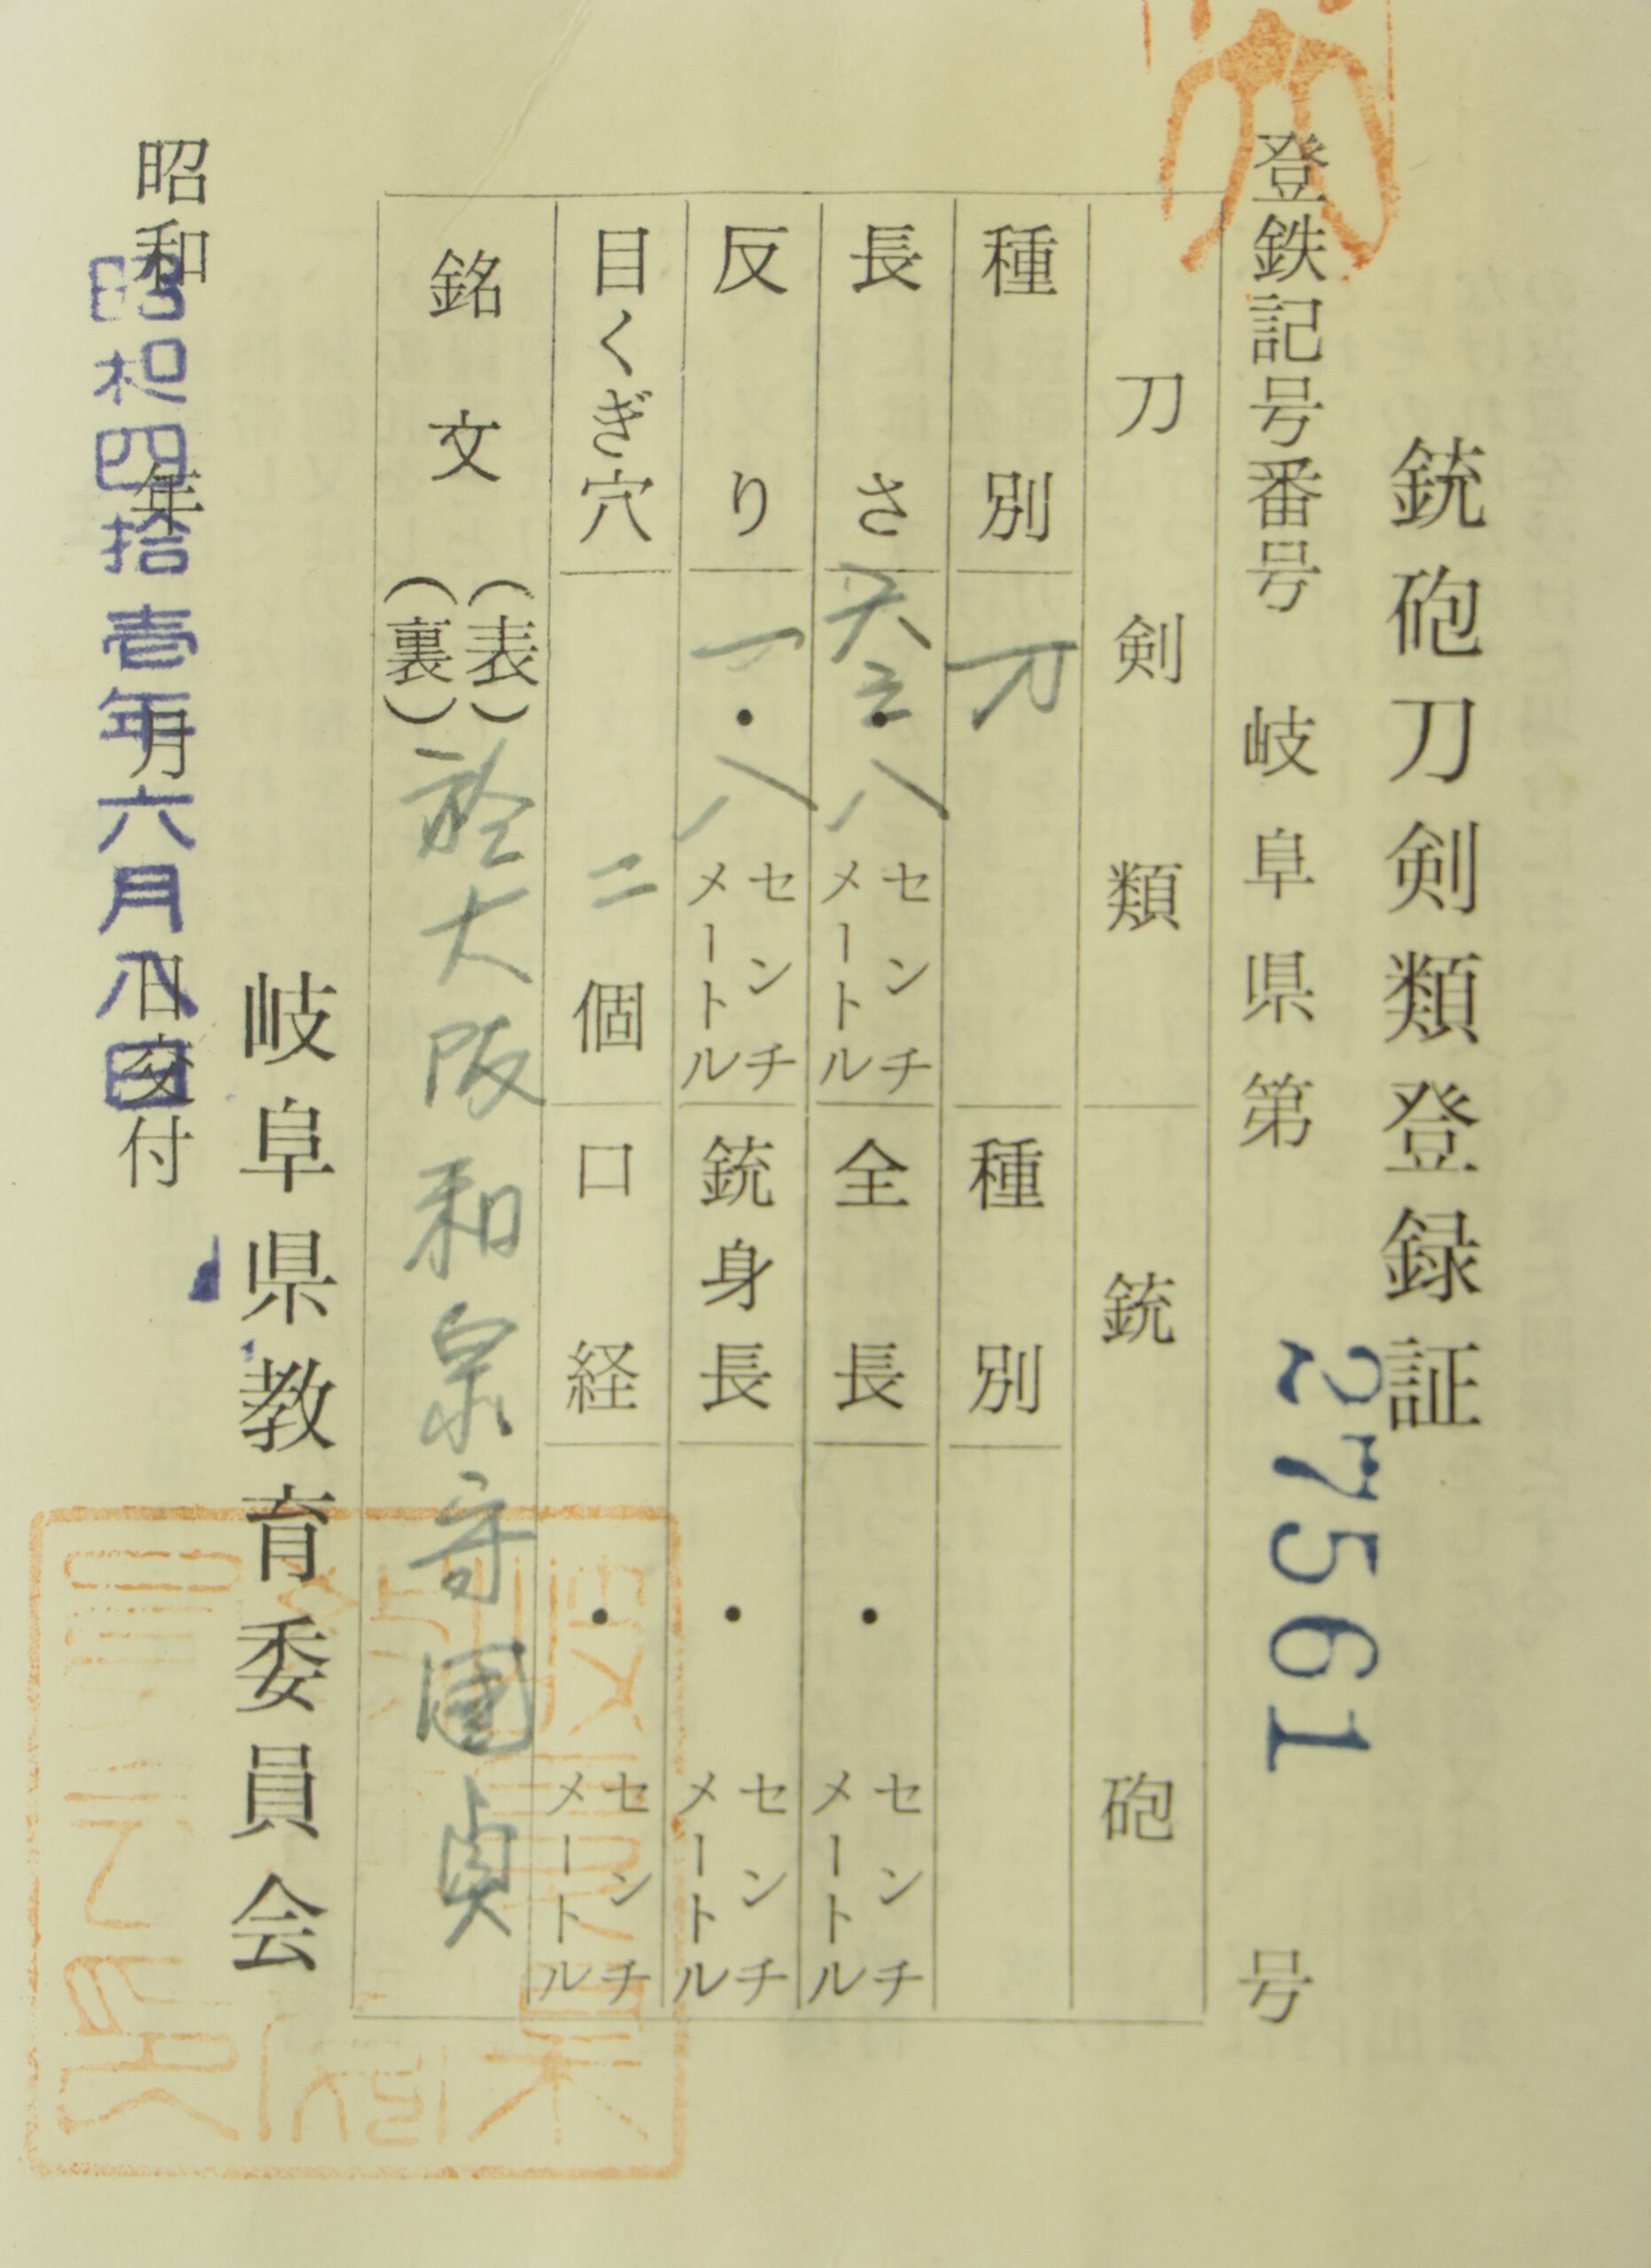 銃砲刀剣類登録証
登鉄記号番号 岐阜県第 27561 号
刀剣類 銃砲
種別 刀 種別
長さ 六三・八 センチメートル 全長 ・ センチメートル
反り 一・八 センチメートル 銃身長 ・ センチメートル
目くぎ穴 二個 口経 ・ センチメートル
銘文 (表) (裏) 於大阪和泉守國貞
岐阜県教育委員会
昭和 年 月 日交付
昭和四拾壱年六月八日